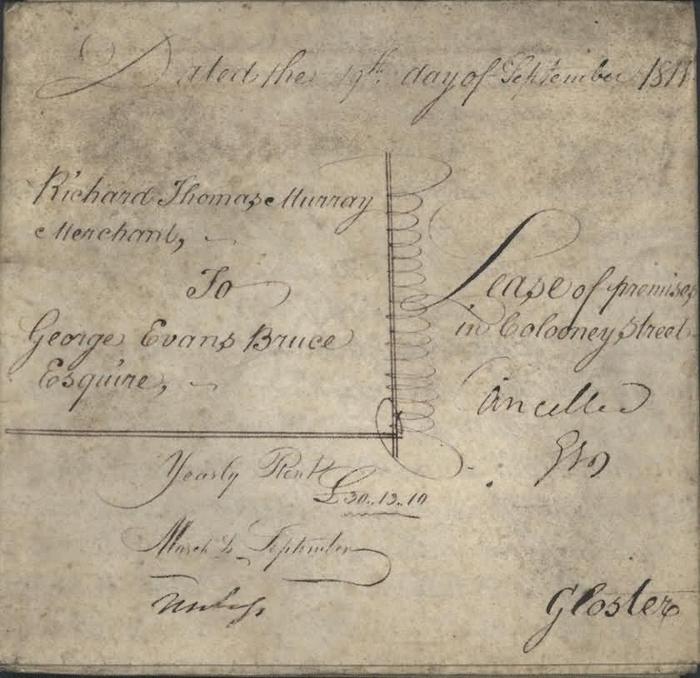 Dated the 19th day of September 181
Richard Thomas Murray
Merchant,
To
George Evans Bruce
Esquire,
Lease of premises
in Colooney Street
Cancelled
Yearly Rent
£30..13..10
March & September
Gloster